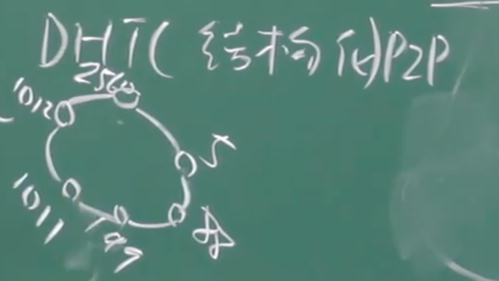 DHT(结构化)P2P
2560
1012
5
1011
99